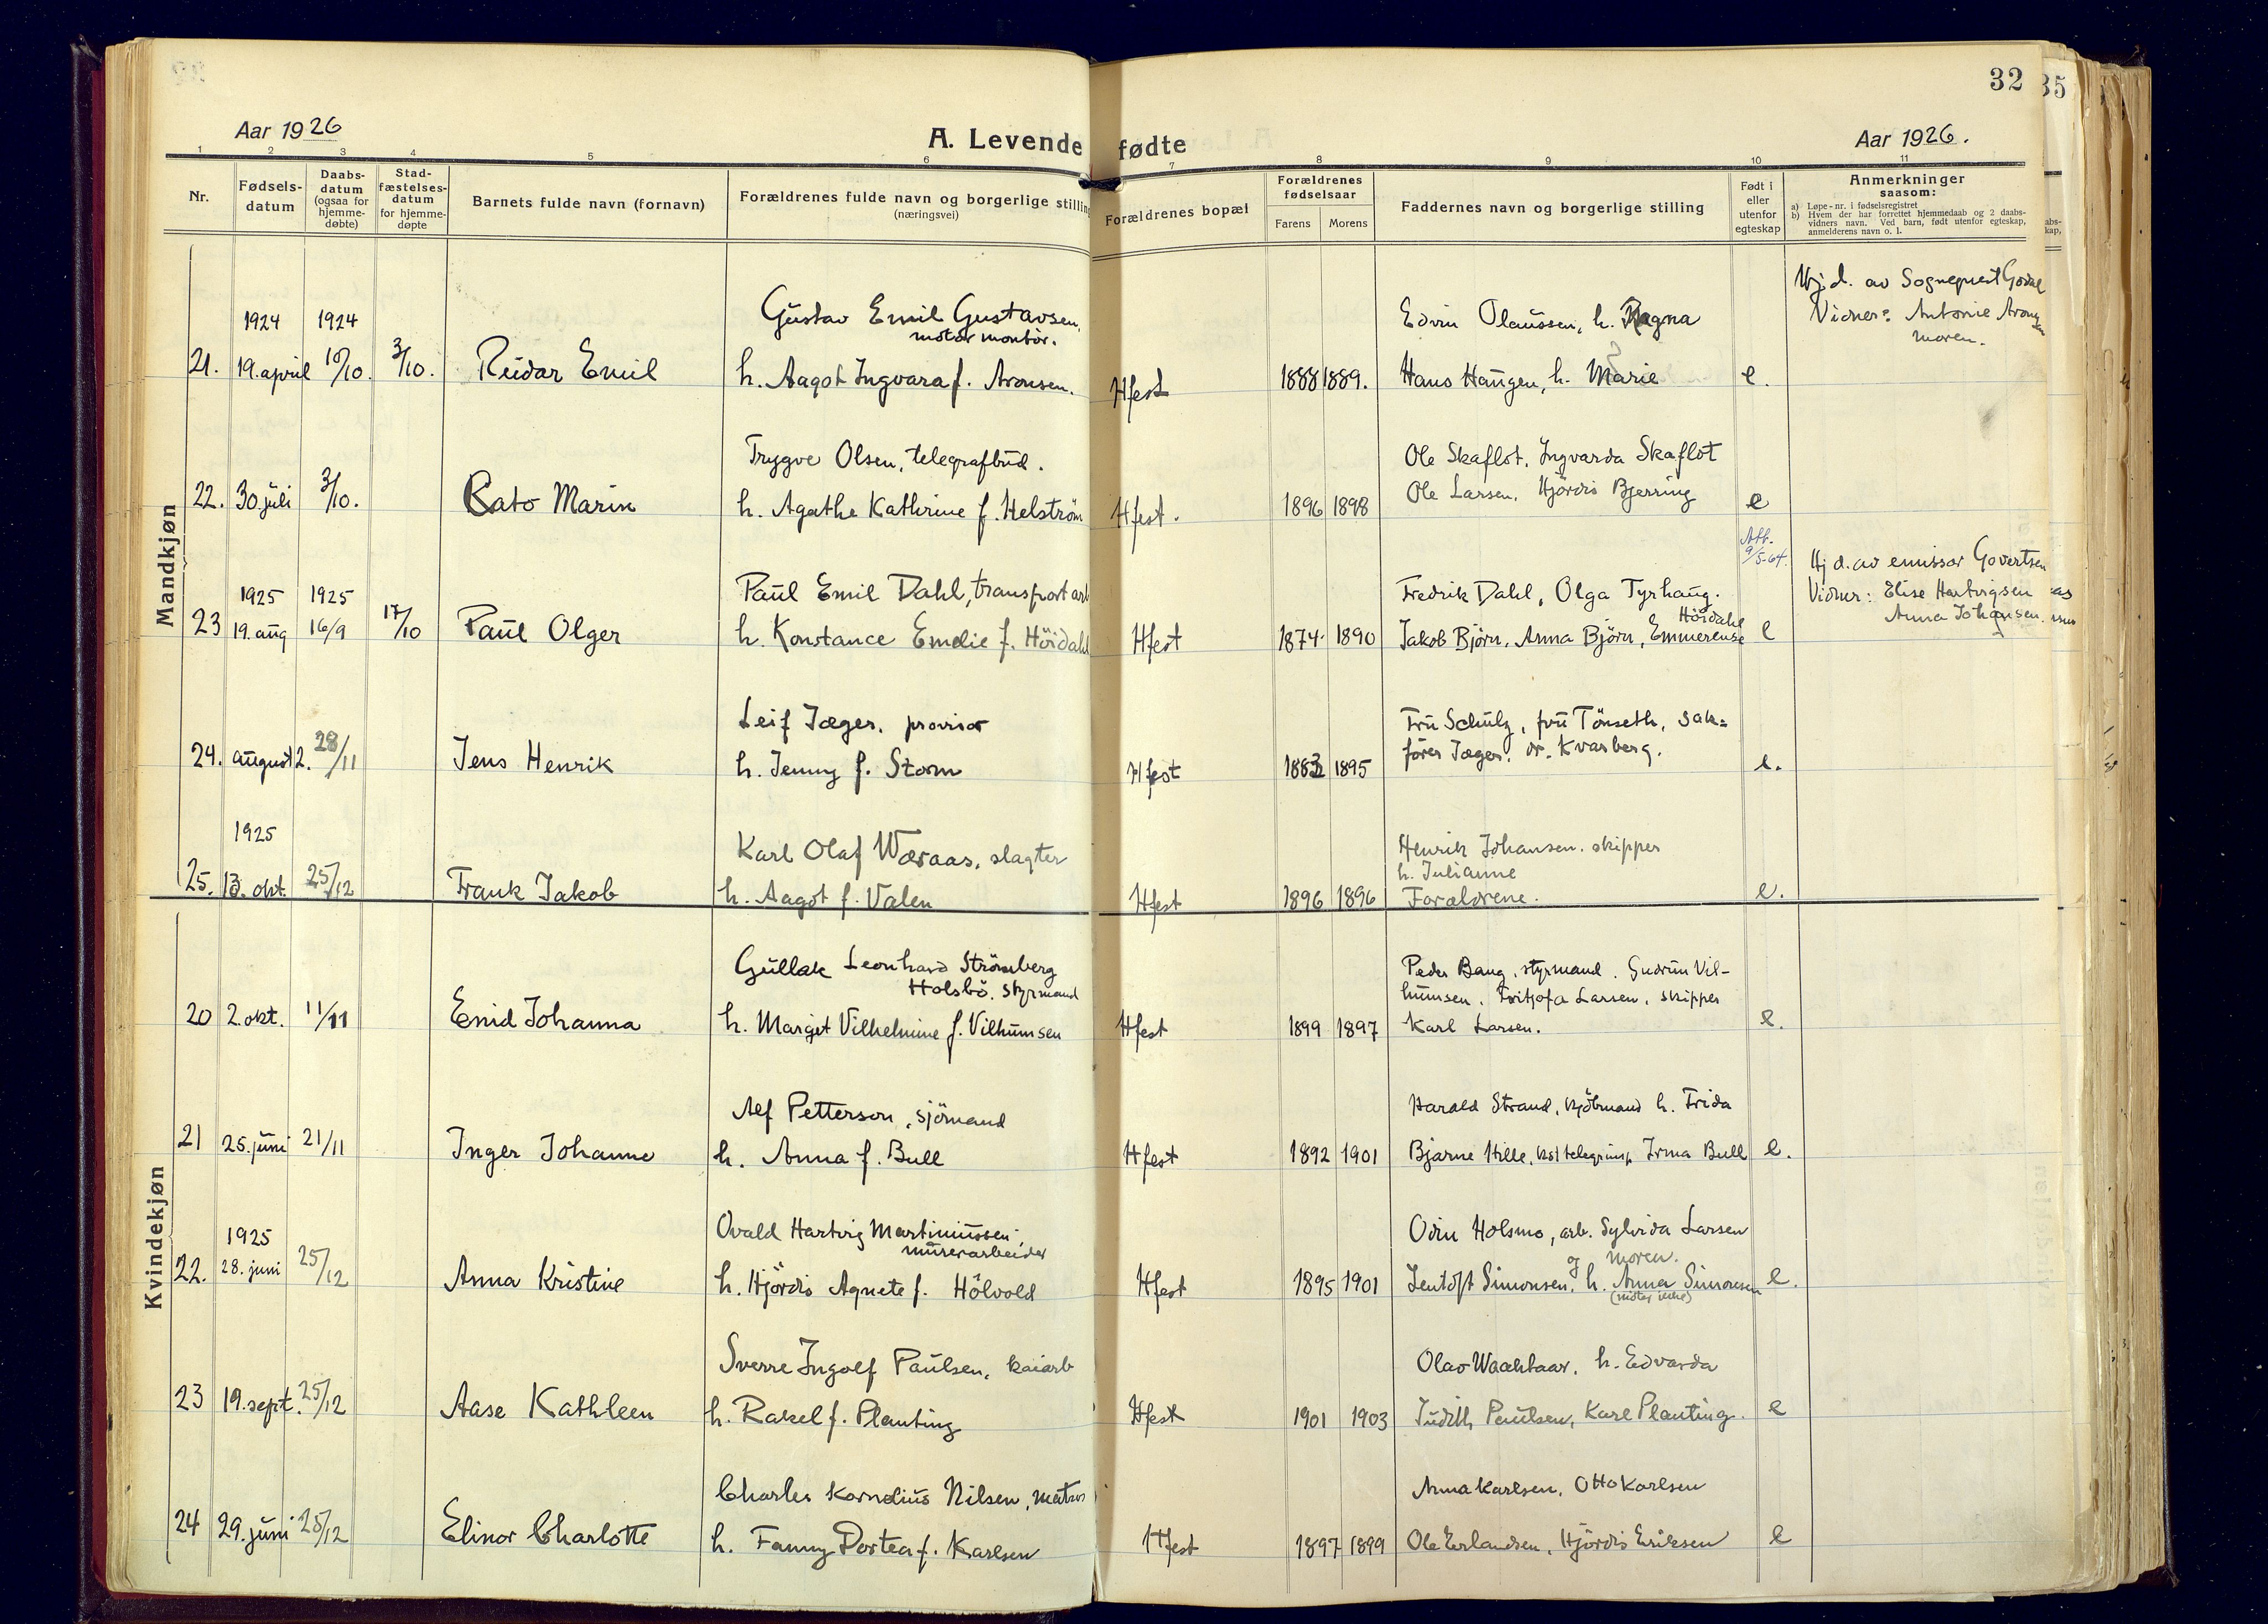 32
35
Aar 1926
A. Levende fødte
Aar 1926.
1 2 3 4 5 6 7 8 9 10 11
Nr.
Fødsels-
datum
Daabs-
datum
(ogsaa for
hjemme-
døbte)
Stad-
fæstelses-
datum
for hjemme-
døpte
Barnets fulde navn (fornavn)
Forældrenes fulde navn og borgerlige stilling
(næringsvei)
Forældrenes bopæl
Forældrenes
fødselsaar
Farens Morens
Faddernes navn og borgerlige stilling
Født i
eller
utenfor
egteskap
Anmerkninger
saasom:
a) Løpe-nr. i fødselsregistret
b) Hvem der har forrettet hjemmedaab og 2 daabs-
vidners navn. Ved barn, født utenfor egteskap,
anmelderens navn o. l.
Mandkjøn
Gustav Emil Gustavsen,
motormontør.
1924 1924
Edvin Olaussen, h. Ragna
Hj.d. av Sogneprest
Vidner: Antonie
moren.
21. 19. april 10/10. 3/10. Reidar Emil h. Aagot Ingvara f. Aronsen. Hfest 1888 1889. Hans Haugen, h. Marie e.
Trygve Olsen, telegrafbud.
Ole Skaflot, Ingvarda Skaflot
22. 30. juli 3/10. Cato Marin h. Agathe Kathrine f. Helström Hfest. 1896 1898 Ole Larsen, Hjördis Bjerring e
9/5-64.
1925 1925
Paul Emil Dahl, transportarb
Fredrik Dahl, Olga Tyrhaug.
Höidahl
Hj d. av emissær Govertsen
Vidner: Elise Hartvigsen
Anna Johansen
23 19. aug 16/9 17/10 Paul Olger h. Konstance Emelie f. Höidahl Hfest 1874 1890 Jakob Björn, Anna Björn, Emmerense e
Leif Jæger, provisor
Fru Schulz, fru Tönseth, sak=
24. august 2. 28/11 Jens Henrik h. Jenny f. Storm Hfest 1895 fører Jæger, dr. Kvarberg. e.
1925
Karl Olaf Wæraas, slagter
Henrik Johansen, skipper
h. Julianne
25. 13. okt. 25/12 Frank Jakob h. Aagot f. Valen Hfest 1896 1896 Forældrene. e.
Kvindekjøn
Gullak Leonhard Strömberg
Holsbö, styrmand
Peder Bang, styrmand. Gudrun Vil-
humsen, Fritjofa Larsen, skipper
20 2. okt. 11/11 Enid Johanna h. Margit Vilhelmine f. Vilhumsen Hfest 1899 1897 Karl Larsen. e.
Alf Petterson, sjömand
Harald Strand, kjöbmand h. Frida
21 25. juni 21/11 Inger Johanne h. Anna f. Bull Hfest 1892 1901 Bjarne Hille, Irma Bull e.
1925
Ovald Hartvig Martiniussen,
murerarbeider
Odin Holsmo, arb. Sylvida Larsen
og moren.
22. 28. juni 25/12 Anna Kristine h. Hjördis Agnete f. Hölvold Hfest 1895 1901 Lentoft Simonsen, h. Anna Simonsen e.
(møter ikke)
Sverre Ingolf Paulsen, kaiarb
Olav Waahtaar, h. Edvarda
23 19. sept. 25/12 Aase Kathleen h. Rakel f. Planting Hfest 1901 1903 Judith Paulsen, Karl Planting. e
Charles Kornelius Nilsen, matros
Anna Karlsen, Otto Karlsen
24 29. juni 25/12 Elinor Charlotte h. Fanny Dortea f. Karlsen Hfest 1897 1899 Ole Erlandsen, Hjördis Eriksen e